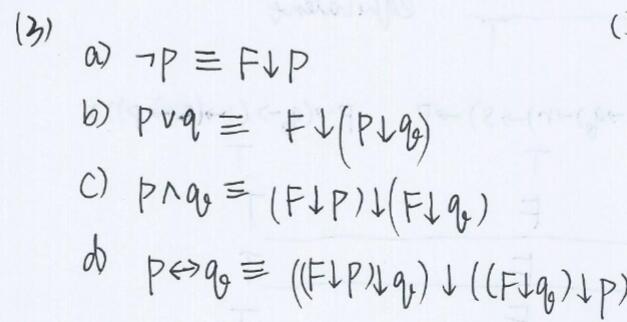 (3)
a) ¬P ≡ F↓P
b) P∨q ≡ F↓(P↓q)
c) P∧q ≡ (F↓P)↓(F↓q)
d) P↔q ≡ ((F↓P)↓q)↓((F↓q)↓P)